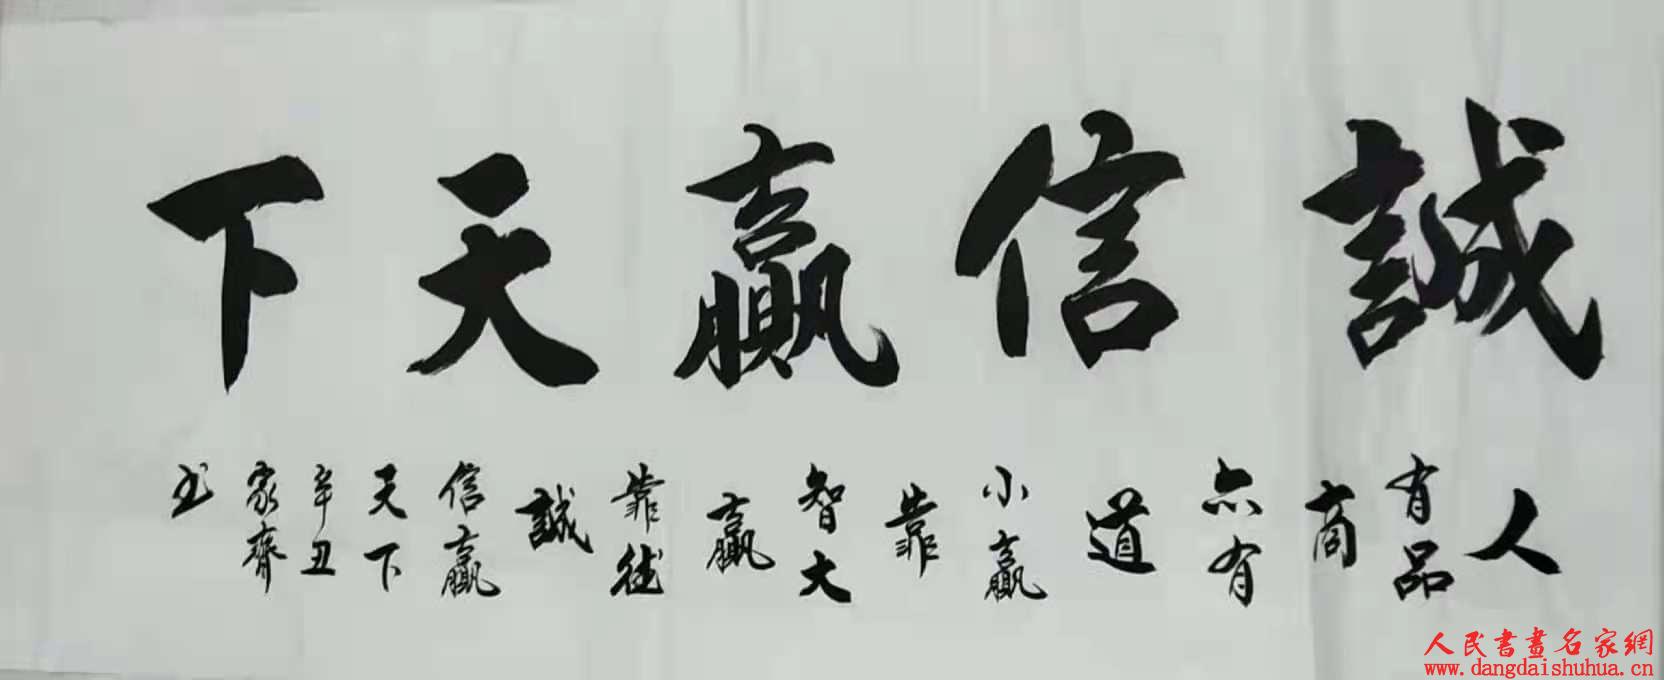 誠信贏天下
人有品商亦有道小贏靠智大贏靠德誠信贏天下
辛丑家齊书
人民書畫名家網
www.dangdaishuhua.cn